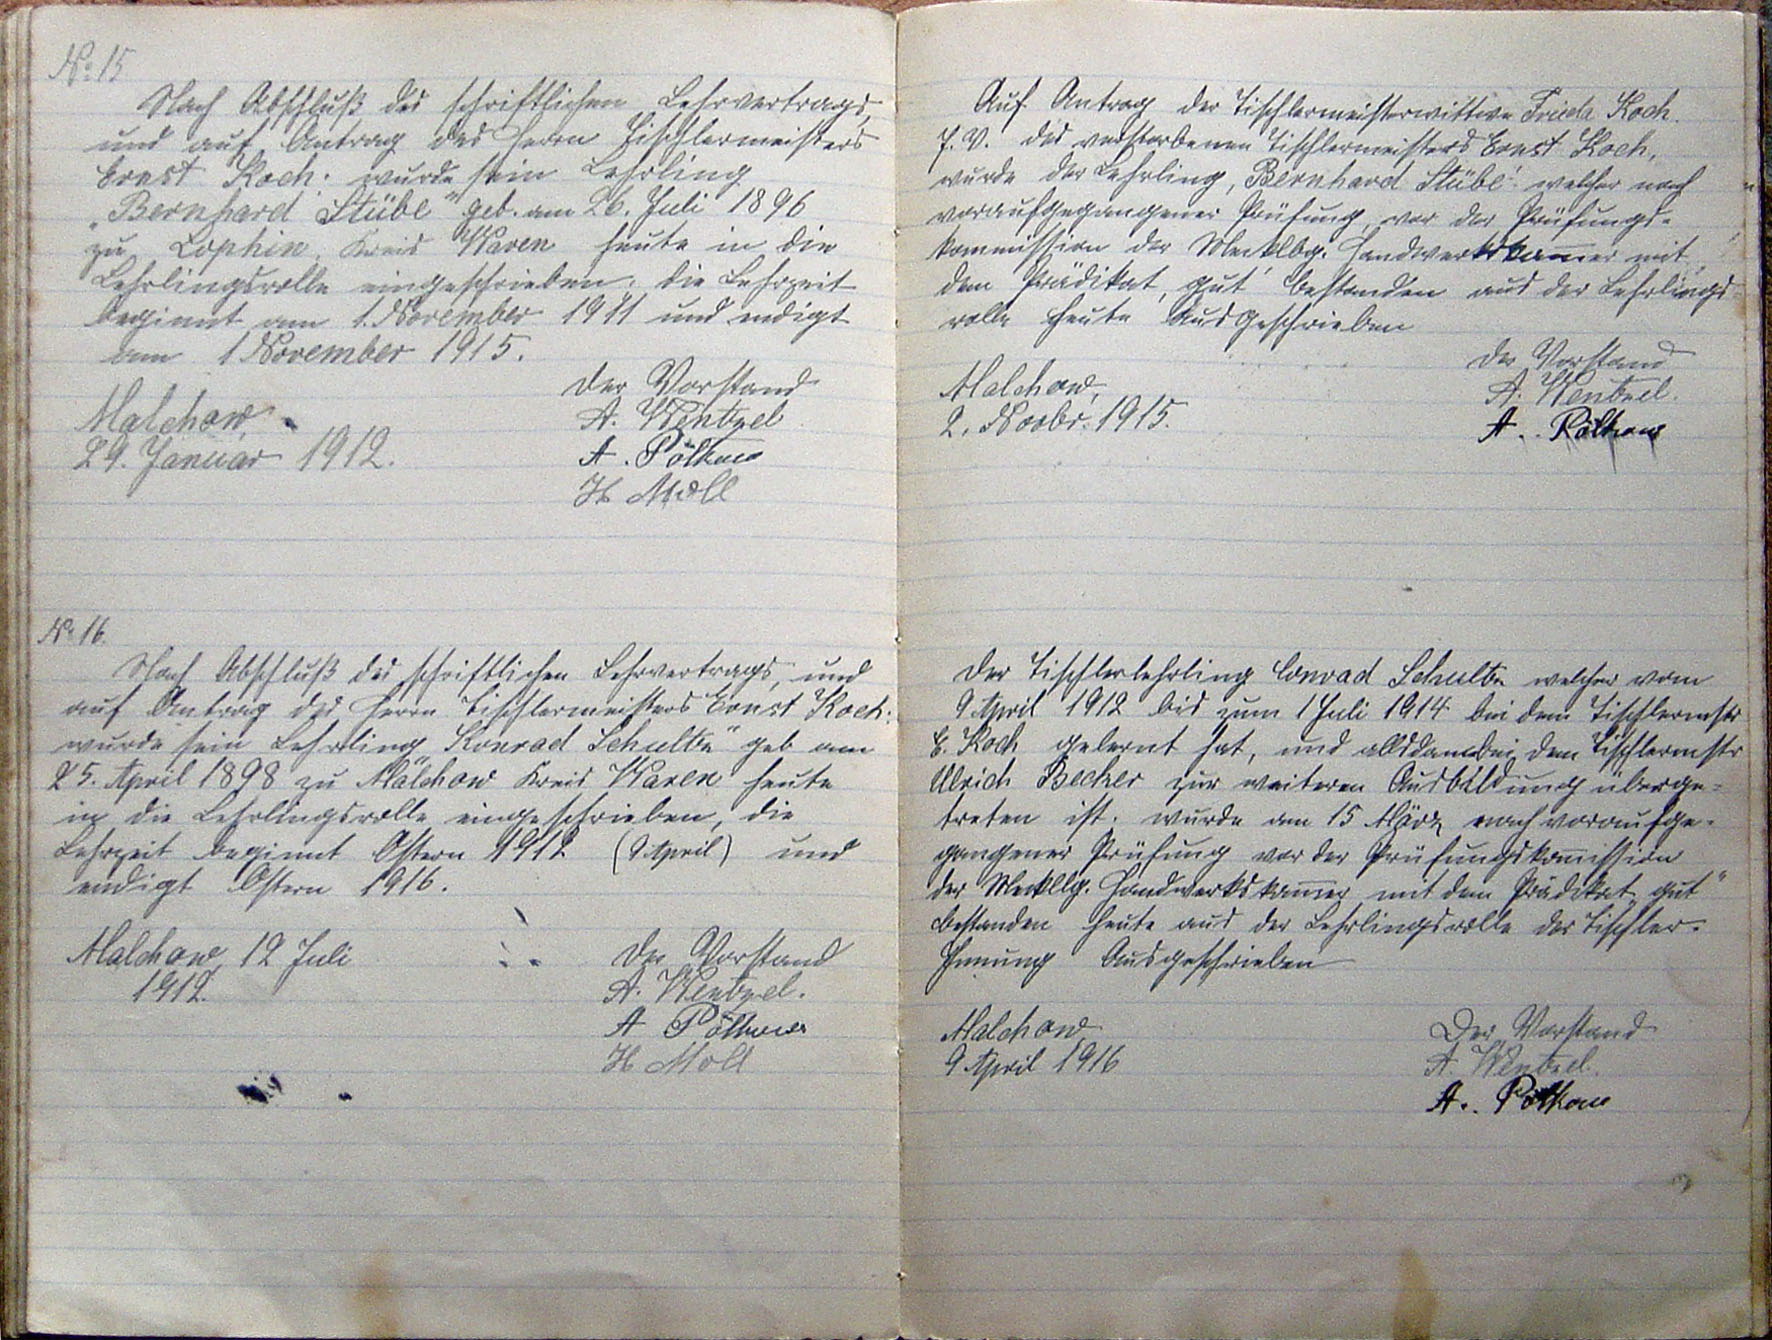 No 15
Nach Abschluß des schriftlichen Lehrvertrags,
und auf Antrag des Herrn Tischlermeisters
Ernst Koch. wurde sein Lehrling
„Bernhard Stübe“ geb. am 26. Juli 1896
zu Lophin. Kreis Waren heute in die
Lehrlingsrolle eingeschrieben. die Lehrzeit
beginnt am 1. November 1911 und endigt
am 1 November 1915.
Malchow,
29. Januar 1912.
Der Vorstand
A. Wentzel
A. Pölkow
H Moll
No 16.
Nach Abschluß des schriftlichen Lehrvertrags, und
auf Antrag des Herrn Tischlermeisters Ernst Koch.
wurde sein Lehrling „Konrad Schulte“ geb am
25. April 1898 zu Malchow Kreis Waren heute
in die Lehrlingsrolle eingeschrieben, die
Lehrzeit beginnt Ostern 1912 (9 April) und
endigt Ostern 1916.
Malchow 12 Juli
1912.
Der Vorstand
A. Wentzel.
A Pölkow
H Moll
Auf Antrag der Tischlermeisterwittwe Frieda Koch.
des verstorbenen Tischlermeisters Ernst Koch,
wurde der Lehrling, Bernhard Stübe welcher nach
voraufgegangener Prüfung, vor der Prüfungs-
kommission der Mecklbg. Handwerkskamer mit
dem Prädikat, gut bestanden aus der Lehrlings
rolle heute Ausgeschrieben
Malchow,
2. Novbr. 1915.
Der Vorstand
A. Wentzel.
A. Pölkow
Der Tischlerlehrling Conrad Schulte welcher vom
9 April 1912 bis zum 1 Juli 1914 bei dem Tischlermstr
E. Koch gelernt hat, und allsdann bei dem Tischlermstr
Ulrich Becker zur weiteren Ausbildung überge-
treten ist. wurde am 15 März nach voraufge-
gangener Prüfung vor der Prüfungskomission
der Mecklbg. Handwerkskamer mit dem Prädikat „gut“
bestanden heute aus der Lehrlingsrolle der Tischler-
Innung Ausgeschrieben
Malchow
9 April 1916
Der Vorstand
A. Wentzel.
A. Pölkow